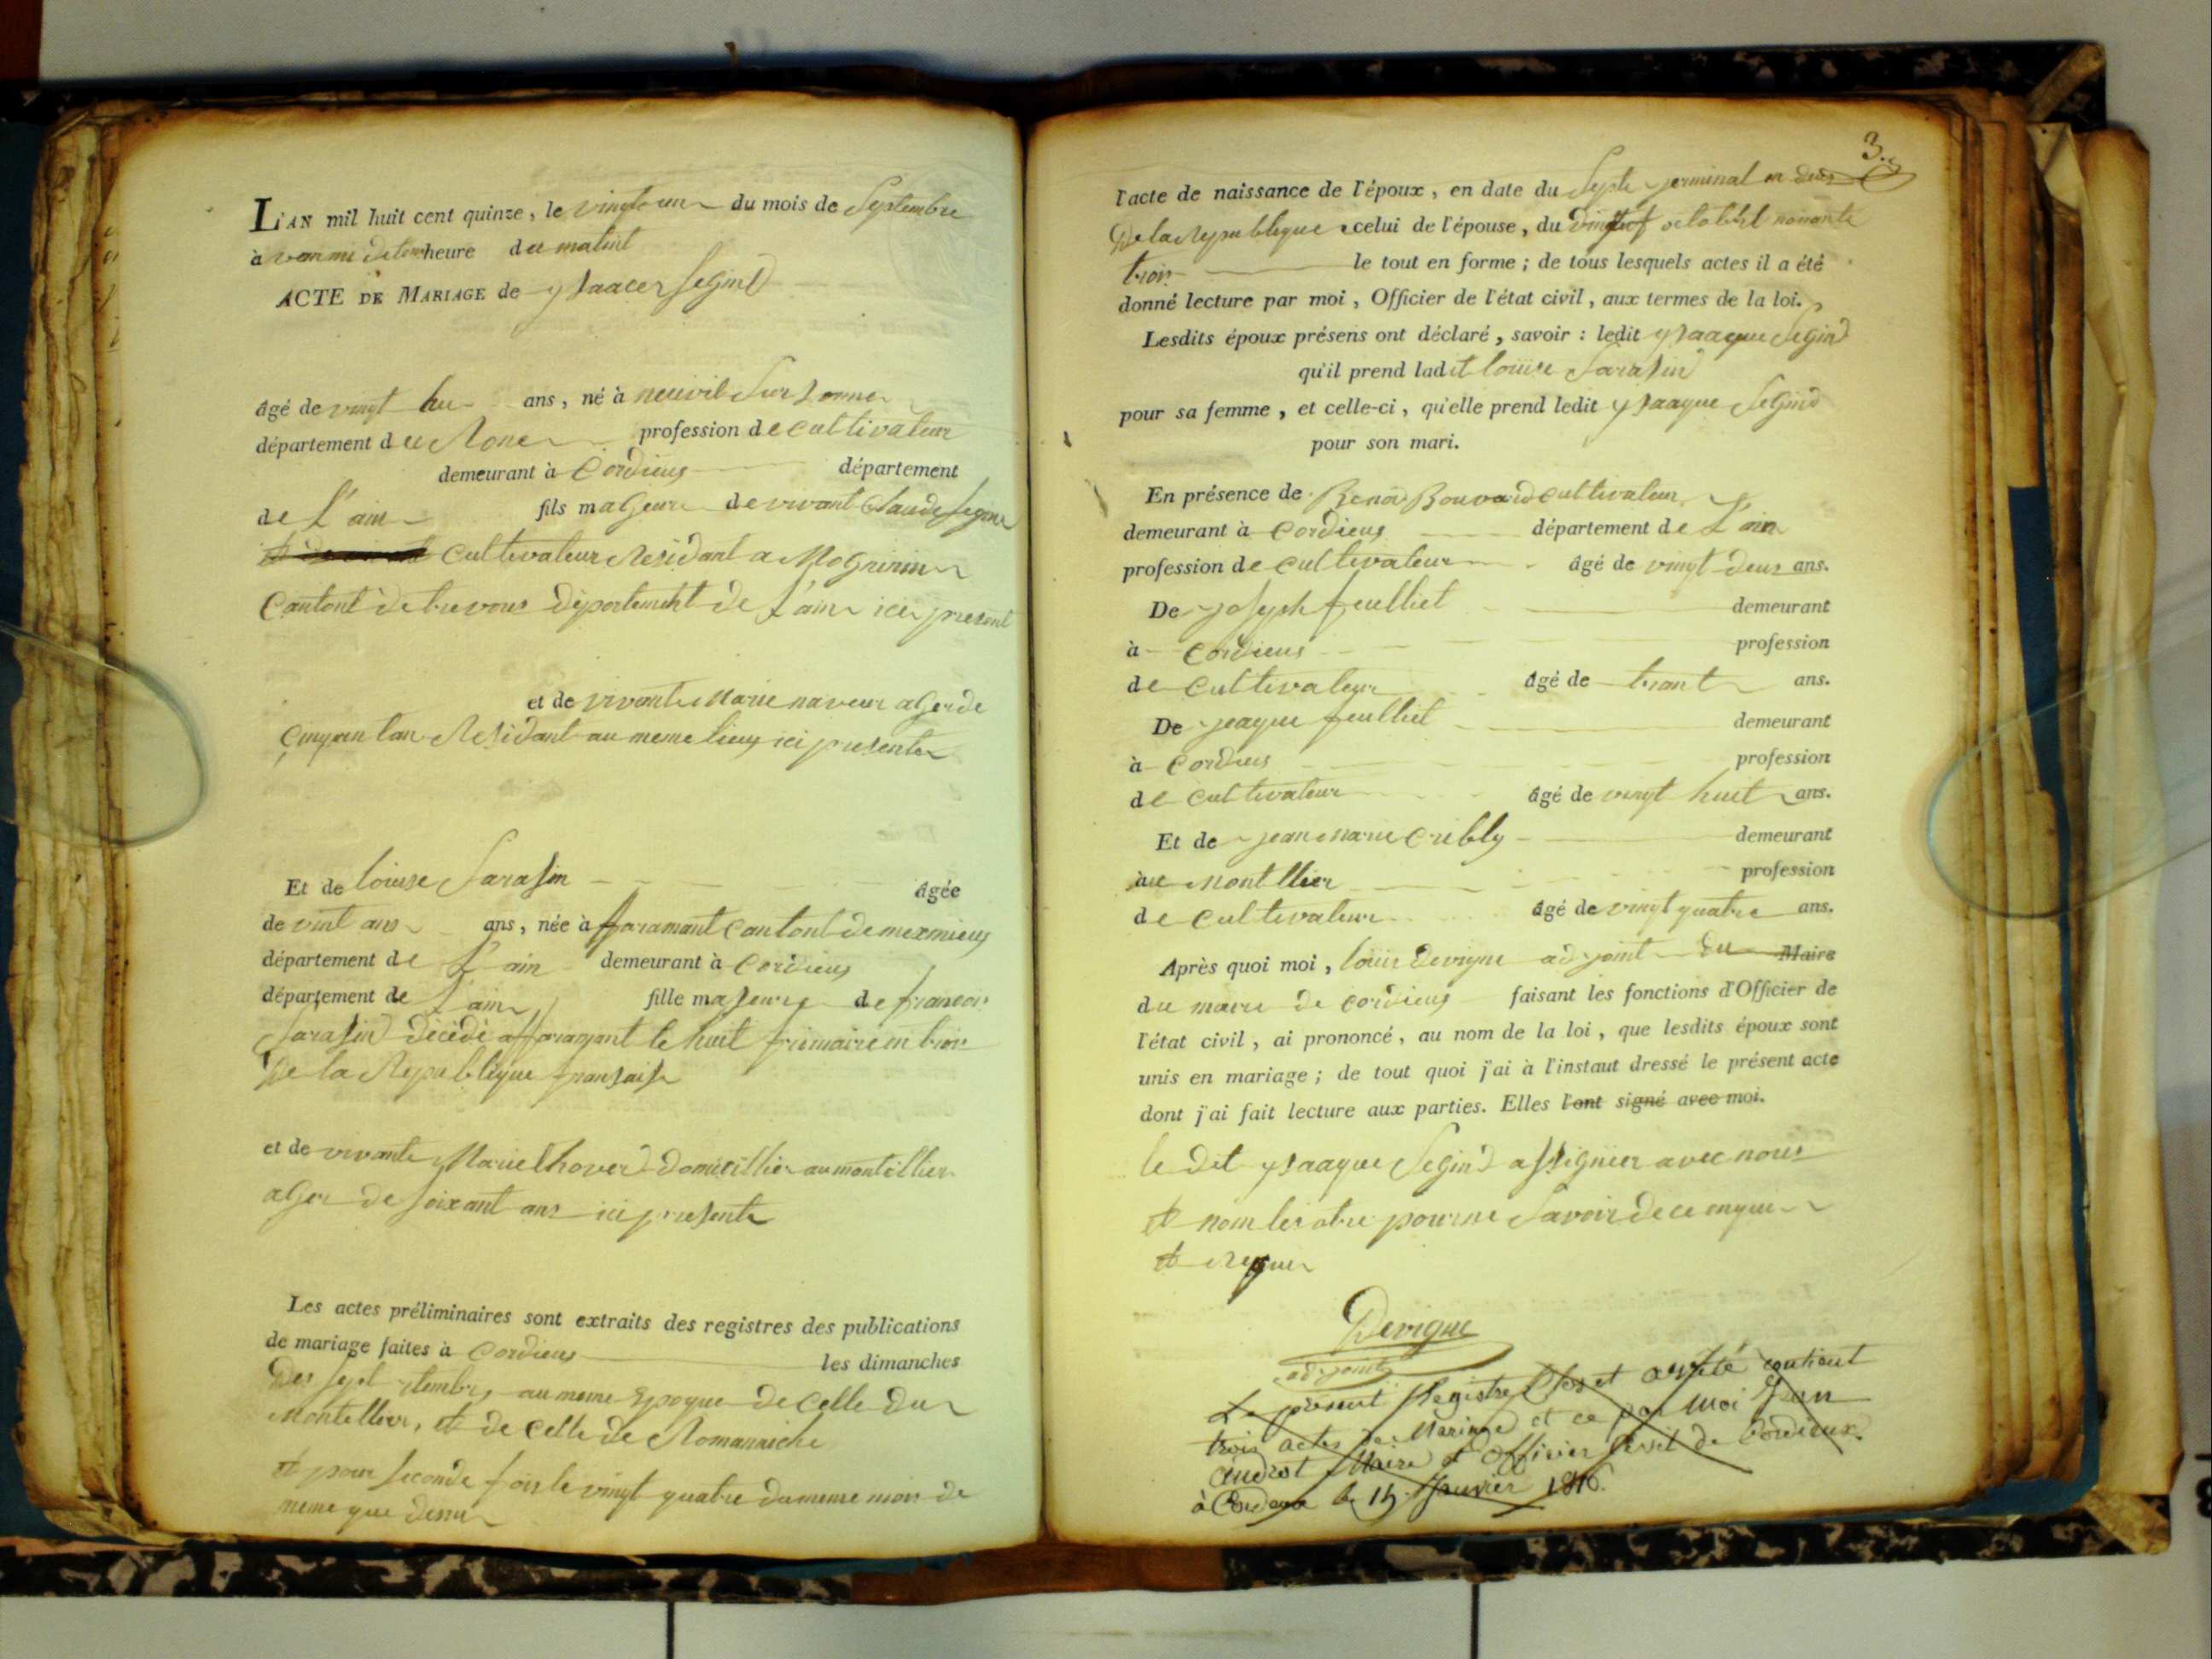 L'AN mil huit cent quinze, le vingt un du mois de Septembre
à heure du matint
ACTE DE MARIAGE de ysaacer Segind
âgé de vingt hu ans, né à neuvil Sur Sonne
département du Rone profession de cultivateur
demeurant à Cordieus département
de L'ain fils majeure de vivant Claude Segine
Cultivateur Residant a Mogninin
Cantont de trevous département de L'ain icy present
et de vivante Marie naveur agee de
Cinquantan Residant au meme lieuy ici presenter
Et de louise Sarasin âgée
de vint ans ans, née à ffaramant Cantont de mexmieuy
département de L'ain demeurant à Cordieuy
département de L'ain fille majeure de francois
Sarasin décédé a ffaramant le huit frimaire en trois
De la Republique fransaise
et de vivante Marie domicillier au montellier
agee de soixant ans ici presente
Les actes préliminaires sont extraits des registres des publications
de mariage faites à Cordieus les dimanches
Des sept au meme Epoque de Celle du
Montellier, et de celle de Romanniche
et pour seconde fois le vingt quatre du meme mois de
meme que dessu
3.
l'acte de naissance de l'époux, en date du Septe germinal en deus
De la Republique celui de l'épouse, du octobre nonante
trois le tout en forme; de tous lesquels actes il a été
donné lecture par moi, Officier de l'état civil, aux termes de la loi.
Lesdits époux présens ont déclaré, savoir: ledit ysaaque Segind
qu'il prend ladit louise Sarasin
pour sa femme, et celle-ci, qu'elle prend ledit ysaaque Segind
pour son mari.
En présence de Benoi Bouvard cultivateur
demeurant à Cordieus département de L'ain
profession de cultivateur âgé de vingt deus ans.
De joseph feulliet demeurant
à Cordieus profession
de Cultivateur âgé de trant ans.
De jeaque feulliet demeurant
à Cordieus profession
de cultivateur âgé de vingt huit ans.
Et de jean marie Cribly demeurant
au Montllier profession
de cultivateur âgé de vingt quatre ans.
Après quoi moi, louis devigne adjoint du Maire
du maire de Cordieus faisant les fonctions d'Officier de
l'état civil, ai prononcé, au nom de la loi, que lesdits époux sont
unis en mariage; de tout quoi j'ai à l'instant dressé le présent acte
dont j'ai fait lecture aux parties. Elles l'ont signé avec moi.
le dit ysaaque Segind assignier avec nous
et nom les otre pour ne Savoir de ce enquie
et requi
Devigne
adjoint
Le présent Registre Clos et arrêté contient
trois actes de Mariage et ce par moi Jean
Maire et Officier Civil de Cordieux.
à Cordieux le 15 Janvier 1816.